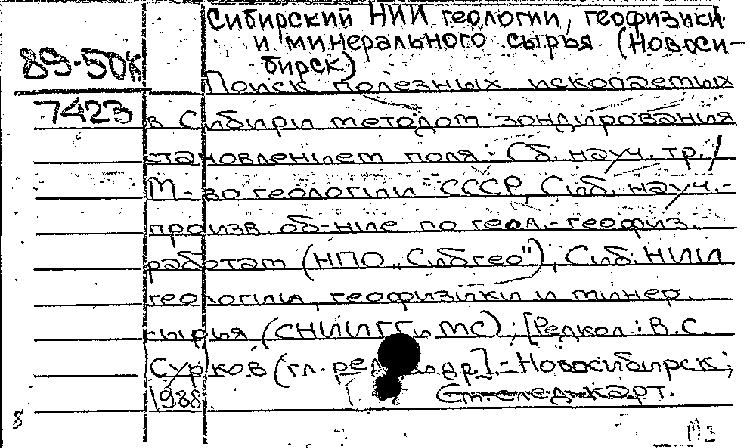 Сибирский НИИ геологии, геофизики
и минерального сырья (Новоси-
бирск)
89-50к
Поиск полезных ископаемых
7423
в Сибири методом зондирования
становлением поля: Сб. науч. тр. /
М-во геологии СССР, Сиб. науч.-
произв. об-ние по геол.-геофиз.
работам (НПО „Сибгео"), Сиб. НИИ
геологии, геофизики и минер.
сырья (СНИИГГиМС); [Редкол.: В.С.
Сурков (гл. ред.) др.].-Новосибирск;
1988
См. след. карт.
8